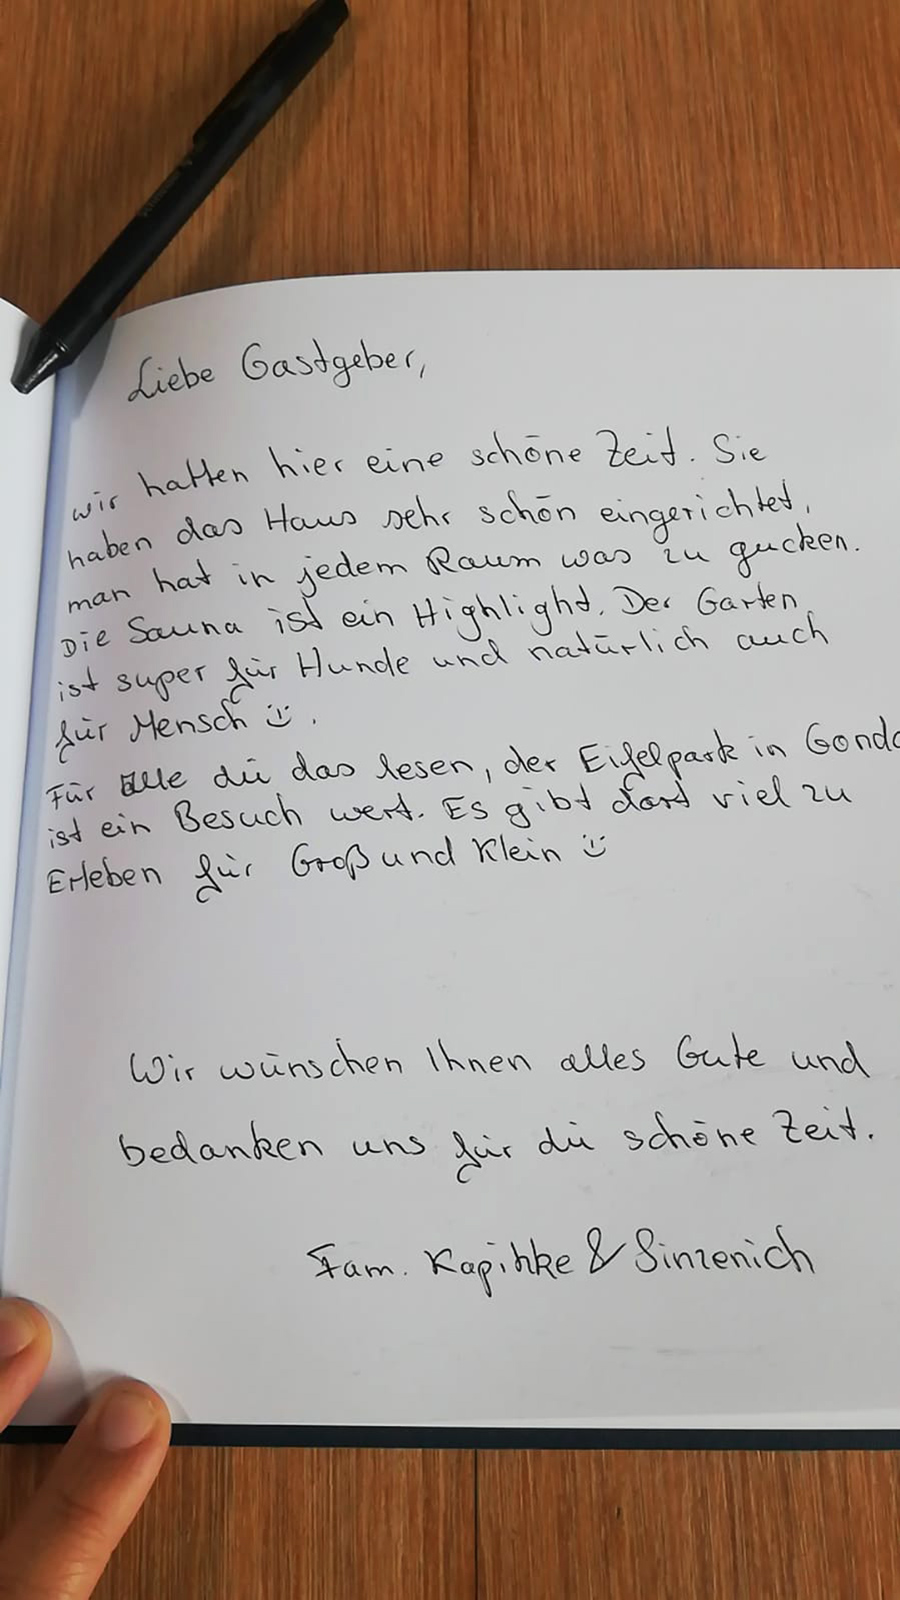 Liebe Gastgeber,
wir hatten hier eine schöne Zeit. Sie
haben das Haus sehr schön eingerichtet,
man hat in jedem Raum was zu gucken.
Die Sauna ist ein Highlight. Der Garten
ist super für Hunde und natürlich auch
für Mensch ☺.
Für Alle die das lesen, der Eifelpark in Gondo
ist ein Besuch wert. Es gibt dort viel zu
Erleben für Groß und Klein ☺
Wir wünschen Ihnen alles Gute und
bedanken uns für die schöne Zeit.
Fam. & Sinzenich